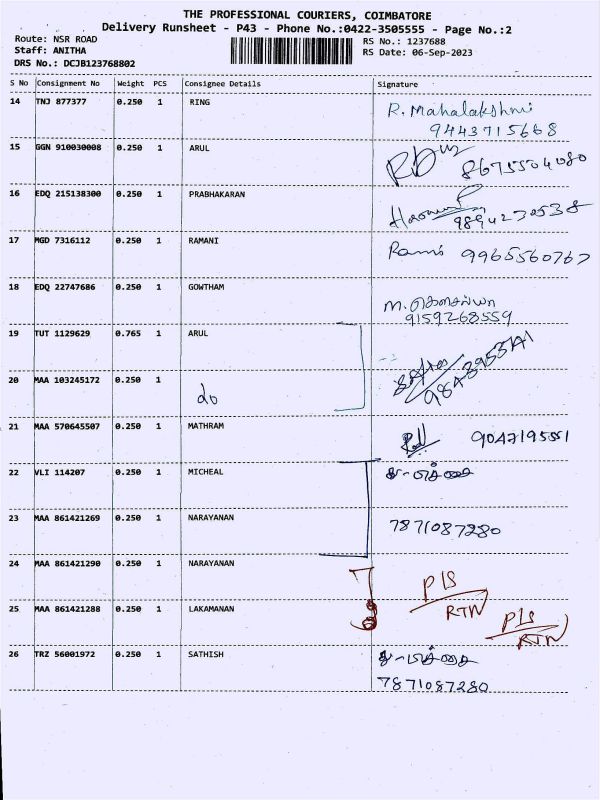 THE PROFESSIONAL COURIERS, COIMBATORE
Delivery Runsheet - P43 - Phone No.:0422-3505555 - Page No.:2
Route: NSR ROAD
RS No.: 1237688
Staff: ANITHA
RS Date: 06-Sep-2023
DRS No.: DCJB123768802
S No Consignment No Weight PCS Consignee Details Signature
14 TNJ 877377 0.250 1 RING R. Mahalakshmi
9443715668
15 GGN 910030008 0.250 1 ARUL 8675504080
16 EDQ 215138300 0.250 1 PRABHAKARAN
9894270538
17 MGD 7316112 0.250 1 RAMANI Ramni 9965560767
18 EDQ 22747686 0.250 1 GOWTHAM
9159268559
19 TUT 1129629 0.765 1 ARUL
20 MAA 103245172 0.250 1 do
21 MAA 570645507 0.250 1 MATHRAM 9047195551
22 VLI 114207 0.250 1 MICHEAL
23 MAA 861421269 0.250 1 NARAYANAN 7871087280
24 MAA 861421290 0.250 1 NARAYANAN P/S
RTN
25 MAA 861421288 0.250 1 LAKAMANAN P/S
RTN
26 TRZ 56001972 0.250 1 SATHISH
7871087280